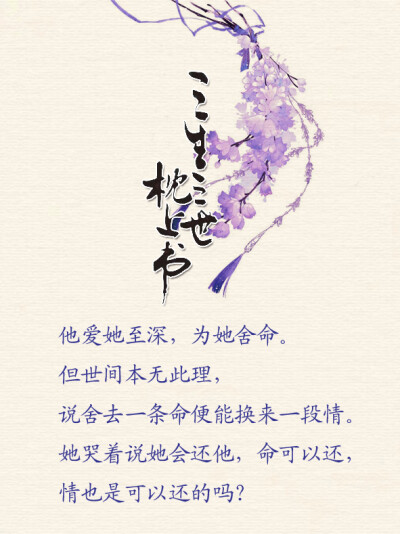 三生三世
枕上书
他爱她至深，为她舍命。
但世间本无此理，
说舍去一条命便能换来一段情。
她哭着说她会还他，命可以还，
情也是可以还的吗？